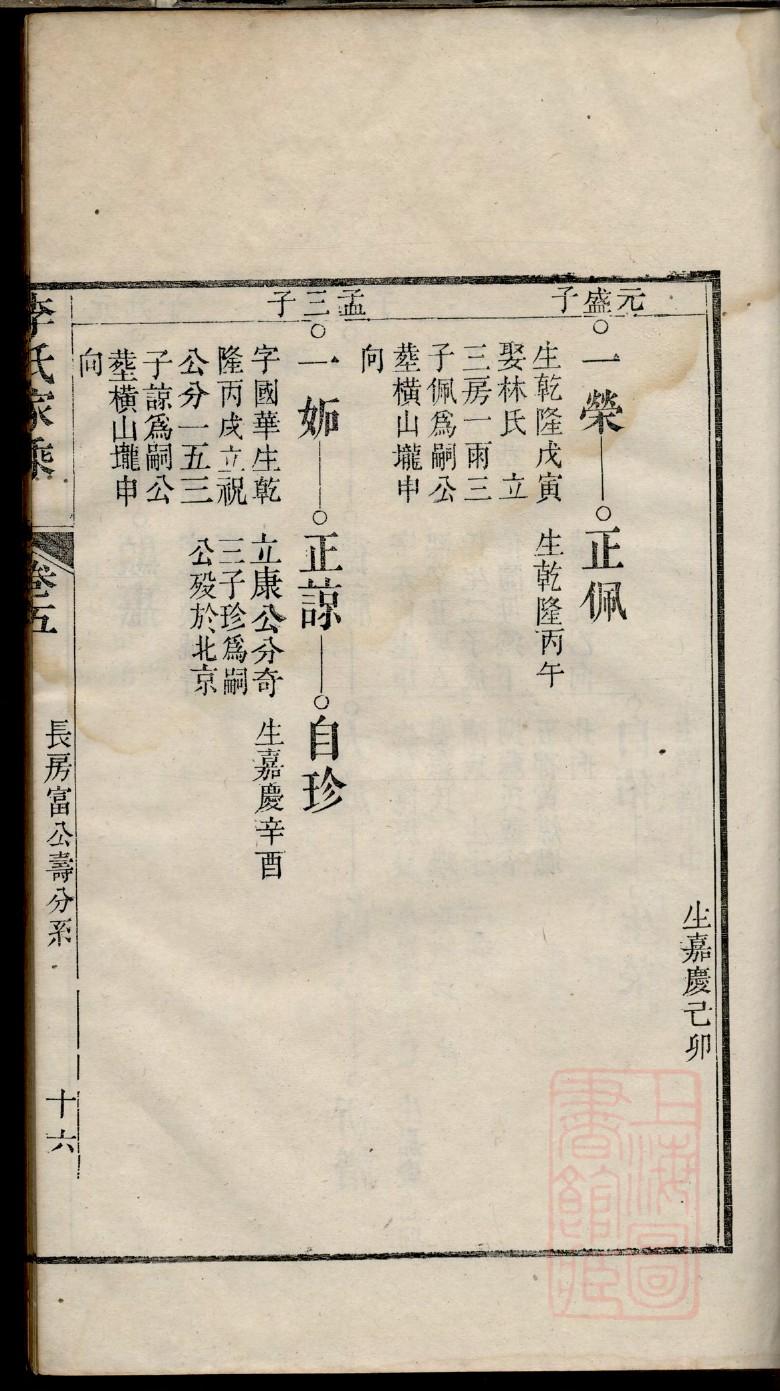 生嘉慶己卯
元盛子
一榮
正佩
生乾隆戊寅
娶林氏 立
三房一雨三
子佩爲嗣公
塟橫山壠申
向
生乾隆丙午
孟三子
一妎
正諒
自珍
字國華生乾
隆丙戌立祝
公分一五三
子諒爲嗣公
塟橫山壠申
向
立康公分奇
三子珍爲嗣
公殁於北京
生嘉慶辛酉
李氏家乘
卷五
長房富公壽分系
十六
上海圖
書館藏